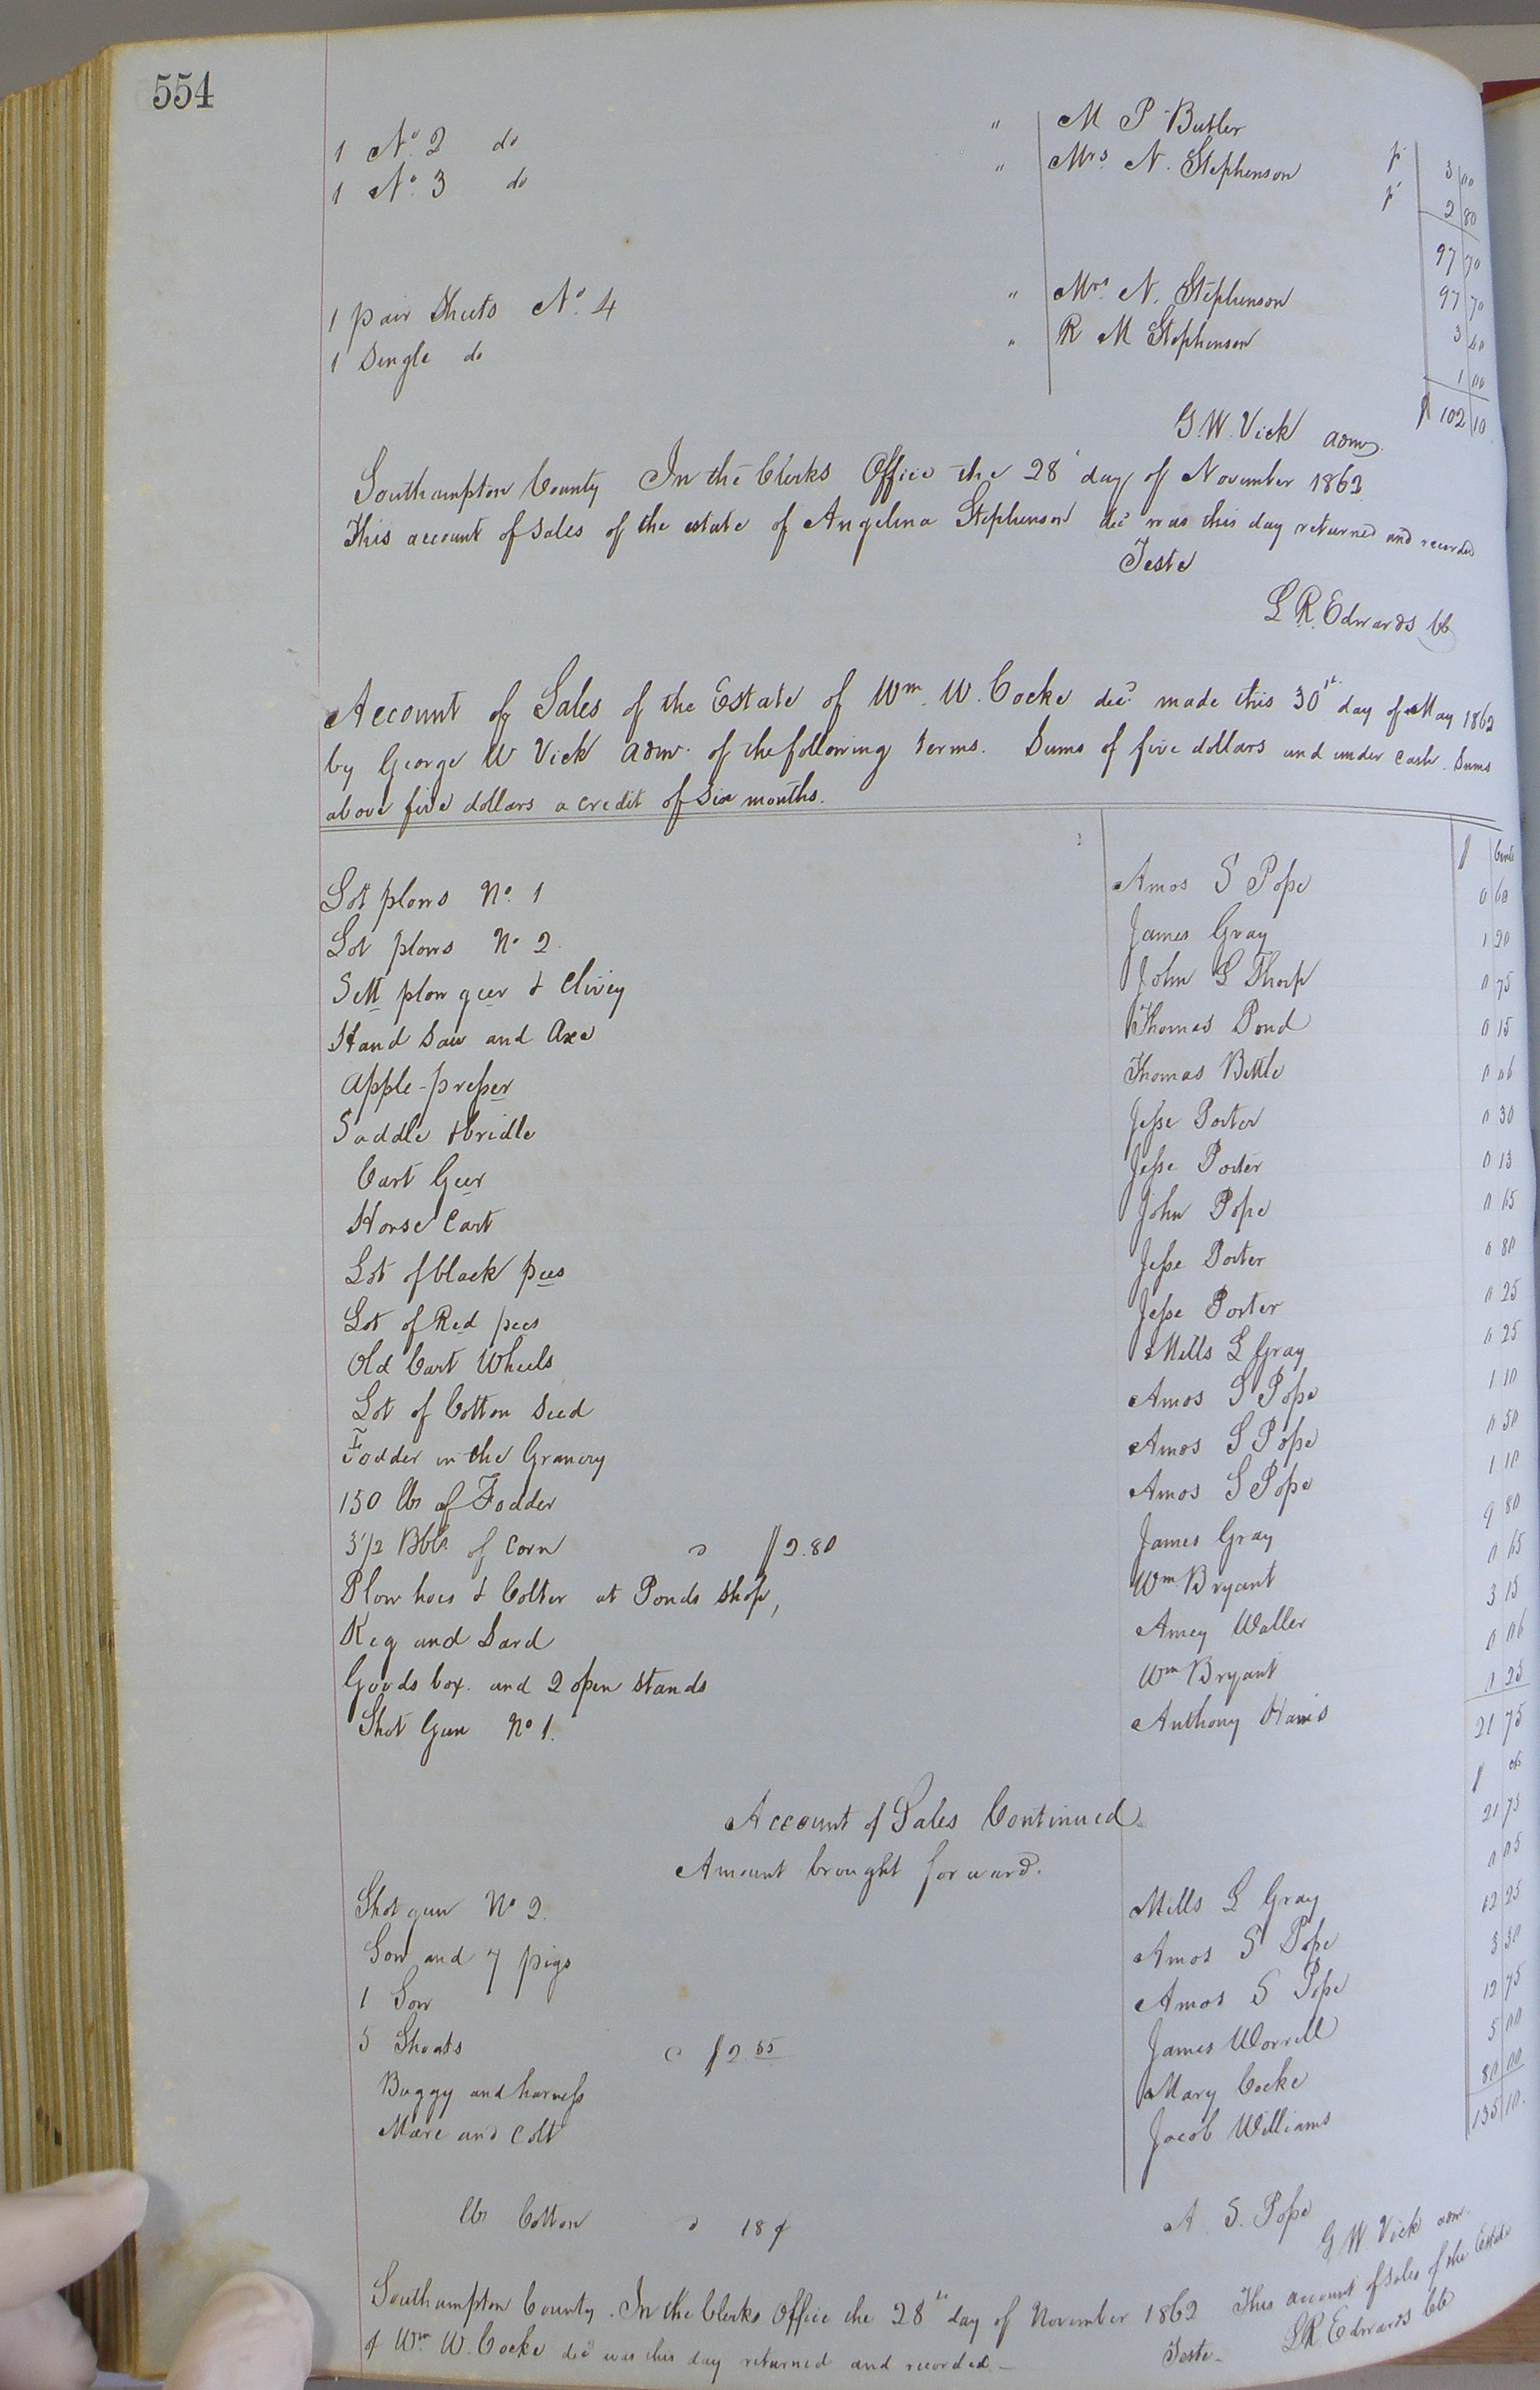 554
1 No. 2 do " M P Butler $ 3 00
1 No. 3 do " Mrs. N. Stephenson $ 2 80
97 70
97 70
1 pair Sheets No. 4 " Mrs. N. Stephenson 3 40
1 Single do " R M Stephenson 1 00
$ 102 10
G. W. Vick admr.
Southampton County In the Clerks Office the 28 day of November 1862
This account of Sales of the estate of Angelina Stephenson decd was this day returned and recorded
Teste
L R. Edwards CC
Account of Sales of the Estate of Wm. W. Cocke decd made this 30th day of May 1862
by George W Vick admr. of the following terms. Sums of five dollars and under cash. Sums
above five dollars a credit of Six months.
$ Cents
Lot plows No. 1 Amos S Pope 0 60
Lot plows No 2. James Gray 1 20
Sett plow geer & Clivey John S Thorp 0 75
Hand Saw and Axe Thomas Pond 0 15
Apple-presser Thomas Bettle 0 06
Saddle & bridle Jesse Porter 0 30
Cart Geer Jesse Porter 0 13
Horse Cart John Pope 0 65
Lot of black pees Jesse Porter 0 80
Lot of Red pees Jesse Porter 0 25
Old Cart Wheels Mills L Gray 0 25
Lot of Cotton Seed Amos S Pope 1 10
Fodder in the Granery Amos S Pope 0 50
150 lbs of Fodder Amos S Pope 1 10
3 1/2 Bbls of Corn @ $2.80 James Gray 9 80
Plow hoes & Colter at Ponds Shop, Wm Bryant 0 65
Keg and Lard Amey Waller 3 15
Goods box. and 2 open Stands Wm Bryant 0 06
Shot Gun No 1. Anthony Harris 0 25
21 75
Account of Sales Continued $ cts
Amount brought forward. 21 75
Shot gun No 2. Mills L Gray 0 05
Sow and 7 pigs Amos S Pope 12 25
1 Sow Amos S Pope 3 30
5 Shoats @ $2.55 James Worrell 12 75
Buggy and harness Mary Cocke 5 00
Mare and Colt Jacob Williams 80 00
135 10.
lbs Cotton @ 18 ¢ A. S. Pope
G W Vick admr.
Southampton County. In the Clerks Office the 28th day of November 1862 This account of Sales of the Estate
of Wm W. Cocke decd was this day returned and recorded-
Teste- L R Edwards CC